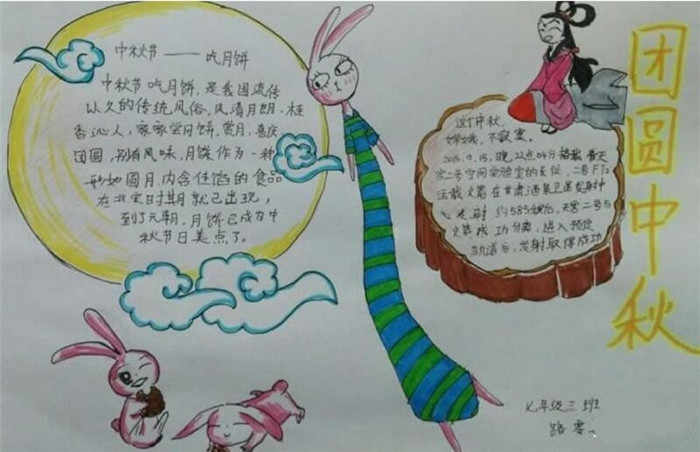 中秋节——吃月饼
中秋节吃月饼,是我国流传
以久的传统风俗,风清月朗、桂
香沁人,家家尝月饼,赏月,喜庆
团圆,别有风味,月饼作为一种
形如圆月,内含佳馅的食品
在北宋时期就已出现,
到了元朝,月饼已成为中
秋节日美点了。
这个中秋,
嫦娥,不寂寞。
2016.9.15.晚,22点04分搭载着天
宫二号空间实验室的长征二号FT2
运载火箭在甘肃酒泉卫星发射中
心发射 约585秒后,天宫二号与
火箭成功分离,进入预定
轨道后,发射取得成功
团圆中秋
七年级三班